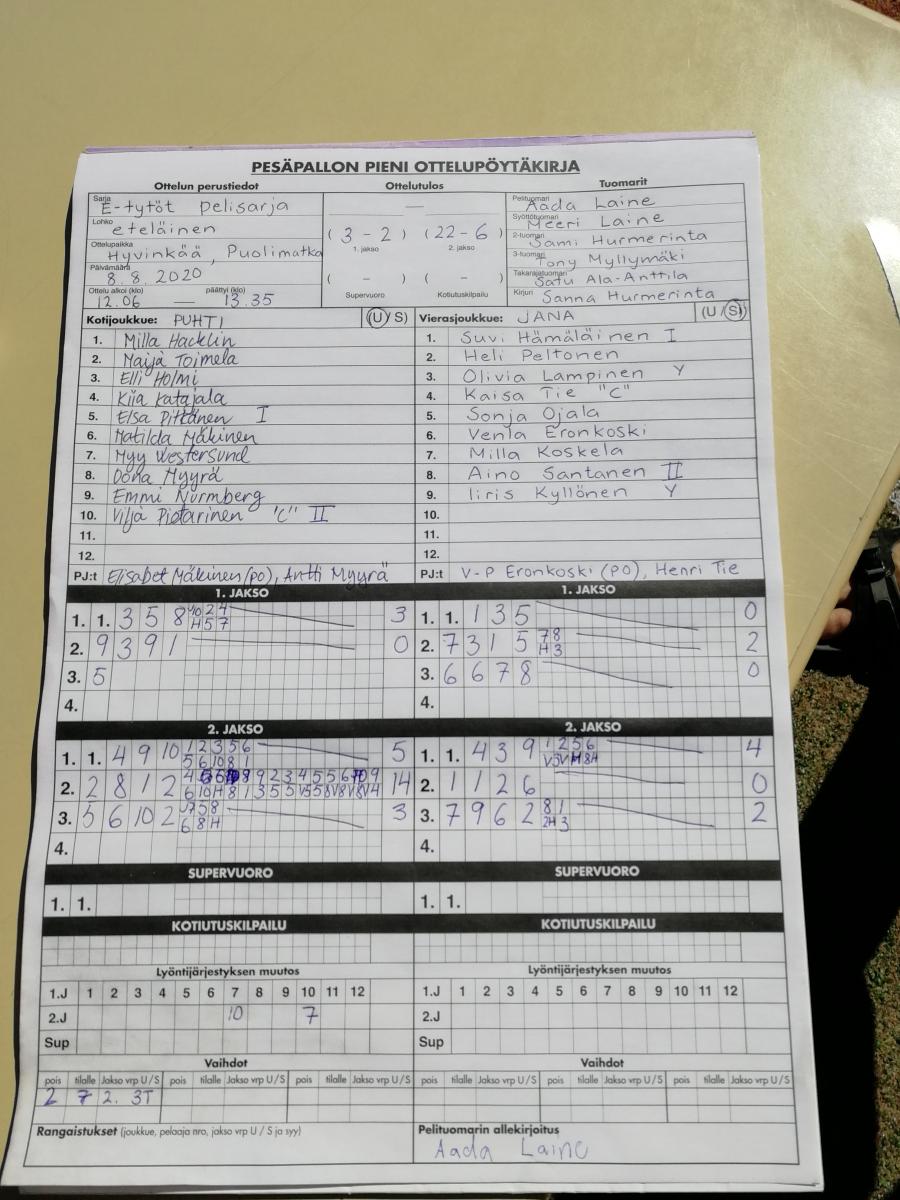 PESÄPALLON PIENI OTTELUPÖYTÄKIRJA
Ottelun perustiedot Ottelutulos Tuomarit
Sarja E-tytöt pelisarja
Lohko eteläinen
Ottelupaikka Hyvinkää, Puolimatka
Päivämäärä 8.8.2020
Ottelu alkoi (klo) 12.06 — päättyi (klo) 13.35
—
( 3 - 2 ) ( 22 - 6 )
1. jakso 2. jakso
( - ) ( - )
Supervuoro Kotiutuskilpailu
Pelituomari Aada Laine
Syöttötuomari Meeri Laine
2-tuomari Sami Hurmerinta
3-tuomari Tony Myllymäki
Takarajatuomari Satu Ala-Anttila
Kirjuri Sanna Hurmerinta
Kotijoukkue: PUHTI (U/S)
1. Milla Hacklin
2. Maija Toimela
3. Elli Holmi
4. Kiia Katajala
5. Elsa Pitkänen I
6. Matilda Mäkinen
7. Myy Westersund
8. Oona Myyrä
9. Emmi Nurmberg
10. Vilja Piotarinen "C" II
11.
12.
PJ:t Elisabet Mäkinen (po), Antti Myyrä
Vierasjoukkue: JANA (U/S)
1. Suvi Hämäläinen I
2. Heli Peltonen
3. Olivia Lampinen Y
4. Kaisa Tie "C"
5. Sonja Ojala
6. Venla Eronkoski
7. Milla Koskela
8. Aino Santanen II
9. Iiris Kyllönen Y
10.
11.
12.
PJ:t V-P Eronkoski (PO), Henri Tie
1. JAKSO
1. 1. 3 5 8 3
2. 9 3 9 1 0
3. 5
4.
1. JAKSO
1. 1. 1 3 5 0
2. 7 3 1 5 7 8 H 3 2
3. 6 6 7 8 0
4.
2. JAKSO
1. 1. 4 9 10 1 2 3 5 6 5 6 10 8 1 5
2. 2 8 1 2 14
3. 5 6 10 2 3
4.
2. JAKSO
1. 1. 4 3 9 1 2 5 6 4
2. 1 1 2 6 0
3. 7 9 6 2 8 1 2H 3 2
4.
SUPERVUORO SUPERVUORO
1. 1. 1. 1.
KOTIUTUSKILPAILU KOTIUTUSKILPAILU
Lyöntijärjestyksen muutos Lyöntijärjestyksen muutos
1.J 1 2 3 4 5 6 7 8 9 10 11 12 1.J 1 2 3 4 5 6 7 8 9 10 11 12
2.J 10 7 2.J
Sup Sup
Vaihdot Vaihdot
pois tilalle Jakso vrp U/S pois tilalle Jakso vrp U/S pois tilalle Jakso vrp U/S pois tilalle Jakso vrp U/S pois tilalle Jakso vrp U/S pois tilalle Jakso vrp U/S
2 7 2. 3T
Rangaistukset (joukkue, pelaaja nro, jakso vrp U / S ja syy) Pelituomarin allekirjoitus
Aada Laine